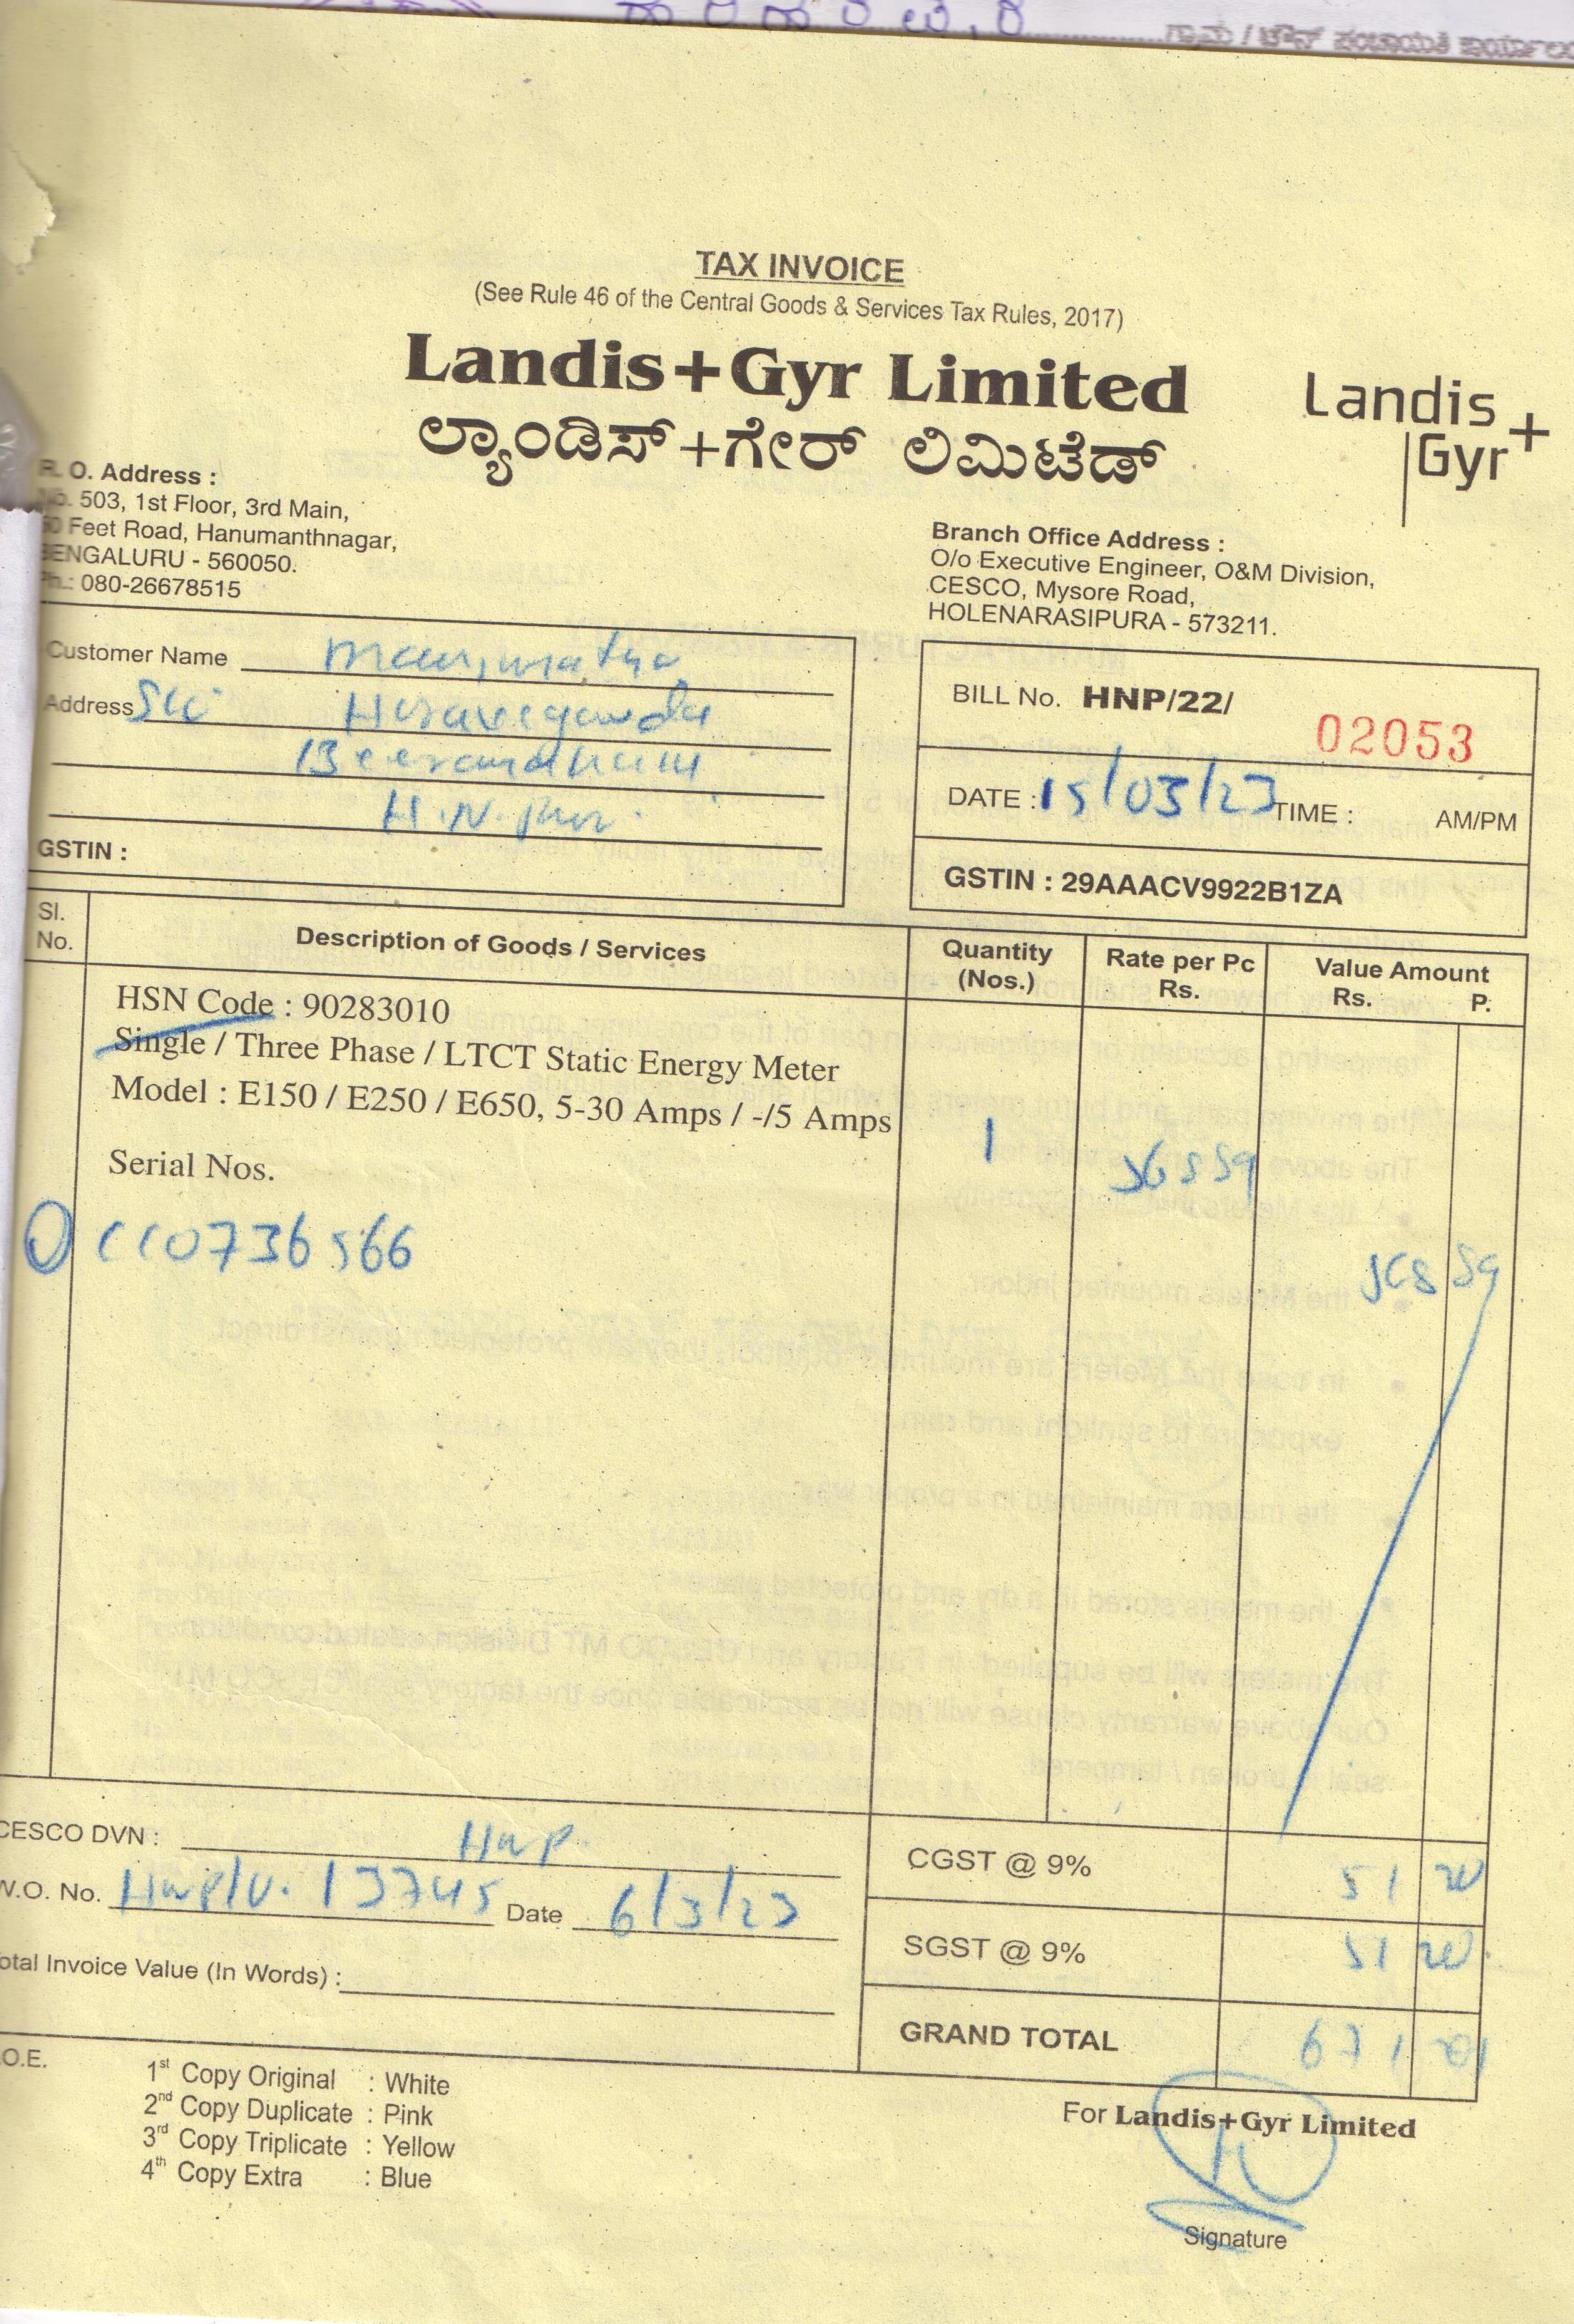 ಗ್ರಾಮ / ಟೌನ್ ಪಂಚಾಯತಿ ಕಾರ್ಯಾಲಯ
TAX INVOICE
(See Rule 46 of the Central Goods & Services Tax Rules, 2017)
Landis+Gyr Limited
ಲ್ಯಾಂಡಿಸ್+ಗೇರ್ ಲಿಮಿಟೆಡ್
Landis
Gyr+
R. O. Address :
No. 503, 1st Floor, 3rd Main,
50 Feet Road, Hanumanthnagar,
BENGALURU - 560050.
Ph.: 080-26678515
Branch Office Address :
O/o Executive Engineer, O&M Division,
CESCO, Mysore Road,
HOLENARASIPURA - 573211.
Customer Name Manjunatha
Address
H.N.pur.
GSTIN :
BILL No. HNP/22/ 02053
DATE : 15/03/23 TIME : AM/PM
GSTIN : 29AAACV9922B1ZA
Sl. No. Description of Goods / Services Quantity (Nos.) Rate per Pc Rs. Value Amount Rs. P.
HSN Code : 90283010
Single / Three Phase / LTCT Static Energy Meter
Model : E150 / E250 / E650, 5-30 Amps / -/5 Amps
1
Serial Nos.
CESCO DVN : HNP
W.O. No. Date 6/3/23
Total Invoice Value (In Words) :
CGST @ 9% 51 20
SGST @ 9% 51 20
GRAND TOTAL 671
.O.E.
1st Copy Original : White
2nd Copy Duplicate : Pink
3rd Copy Triplicate : Yellow
4th Copy Extra : Blue
For Landis+Gyr Limited
Signature